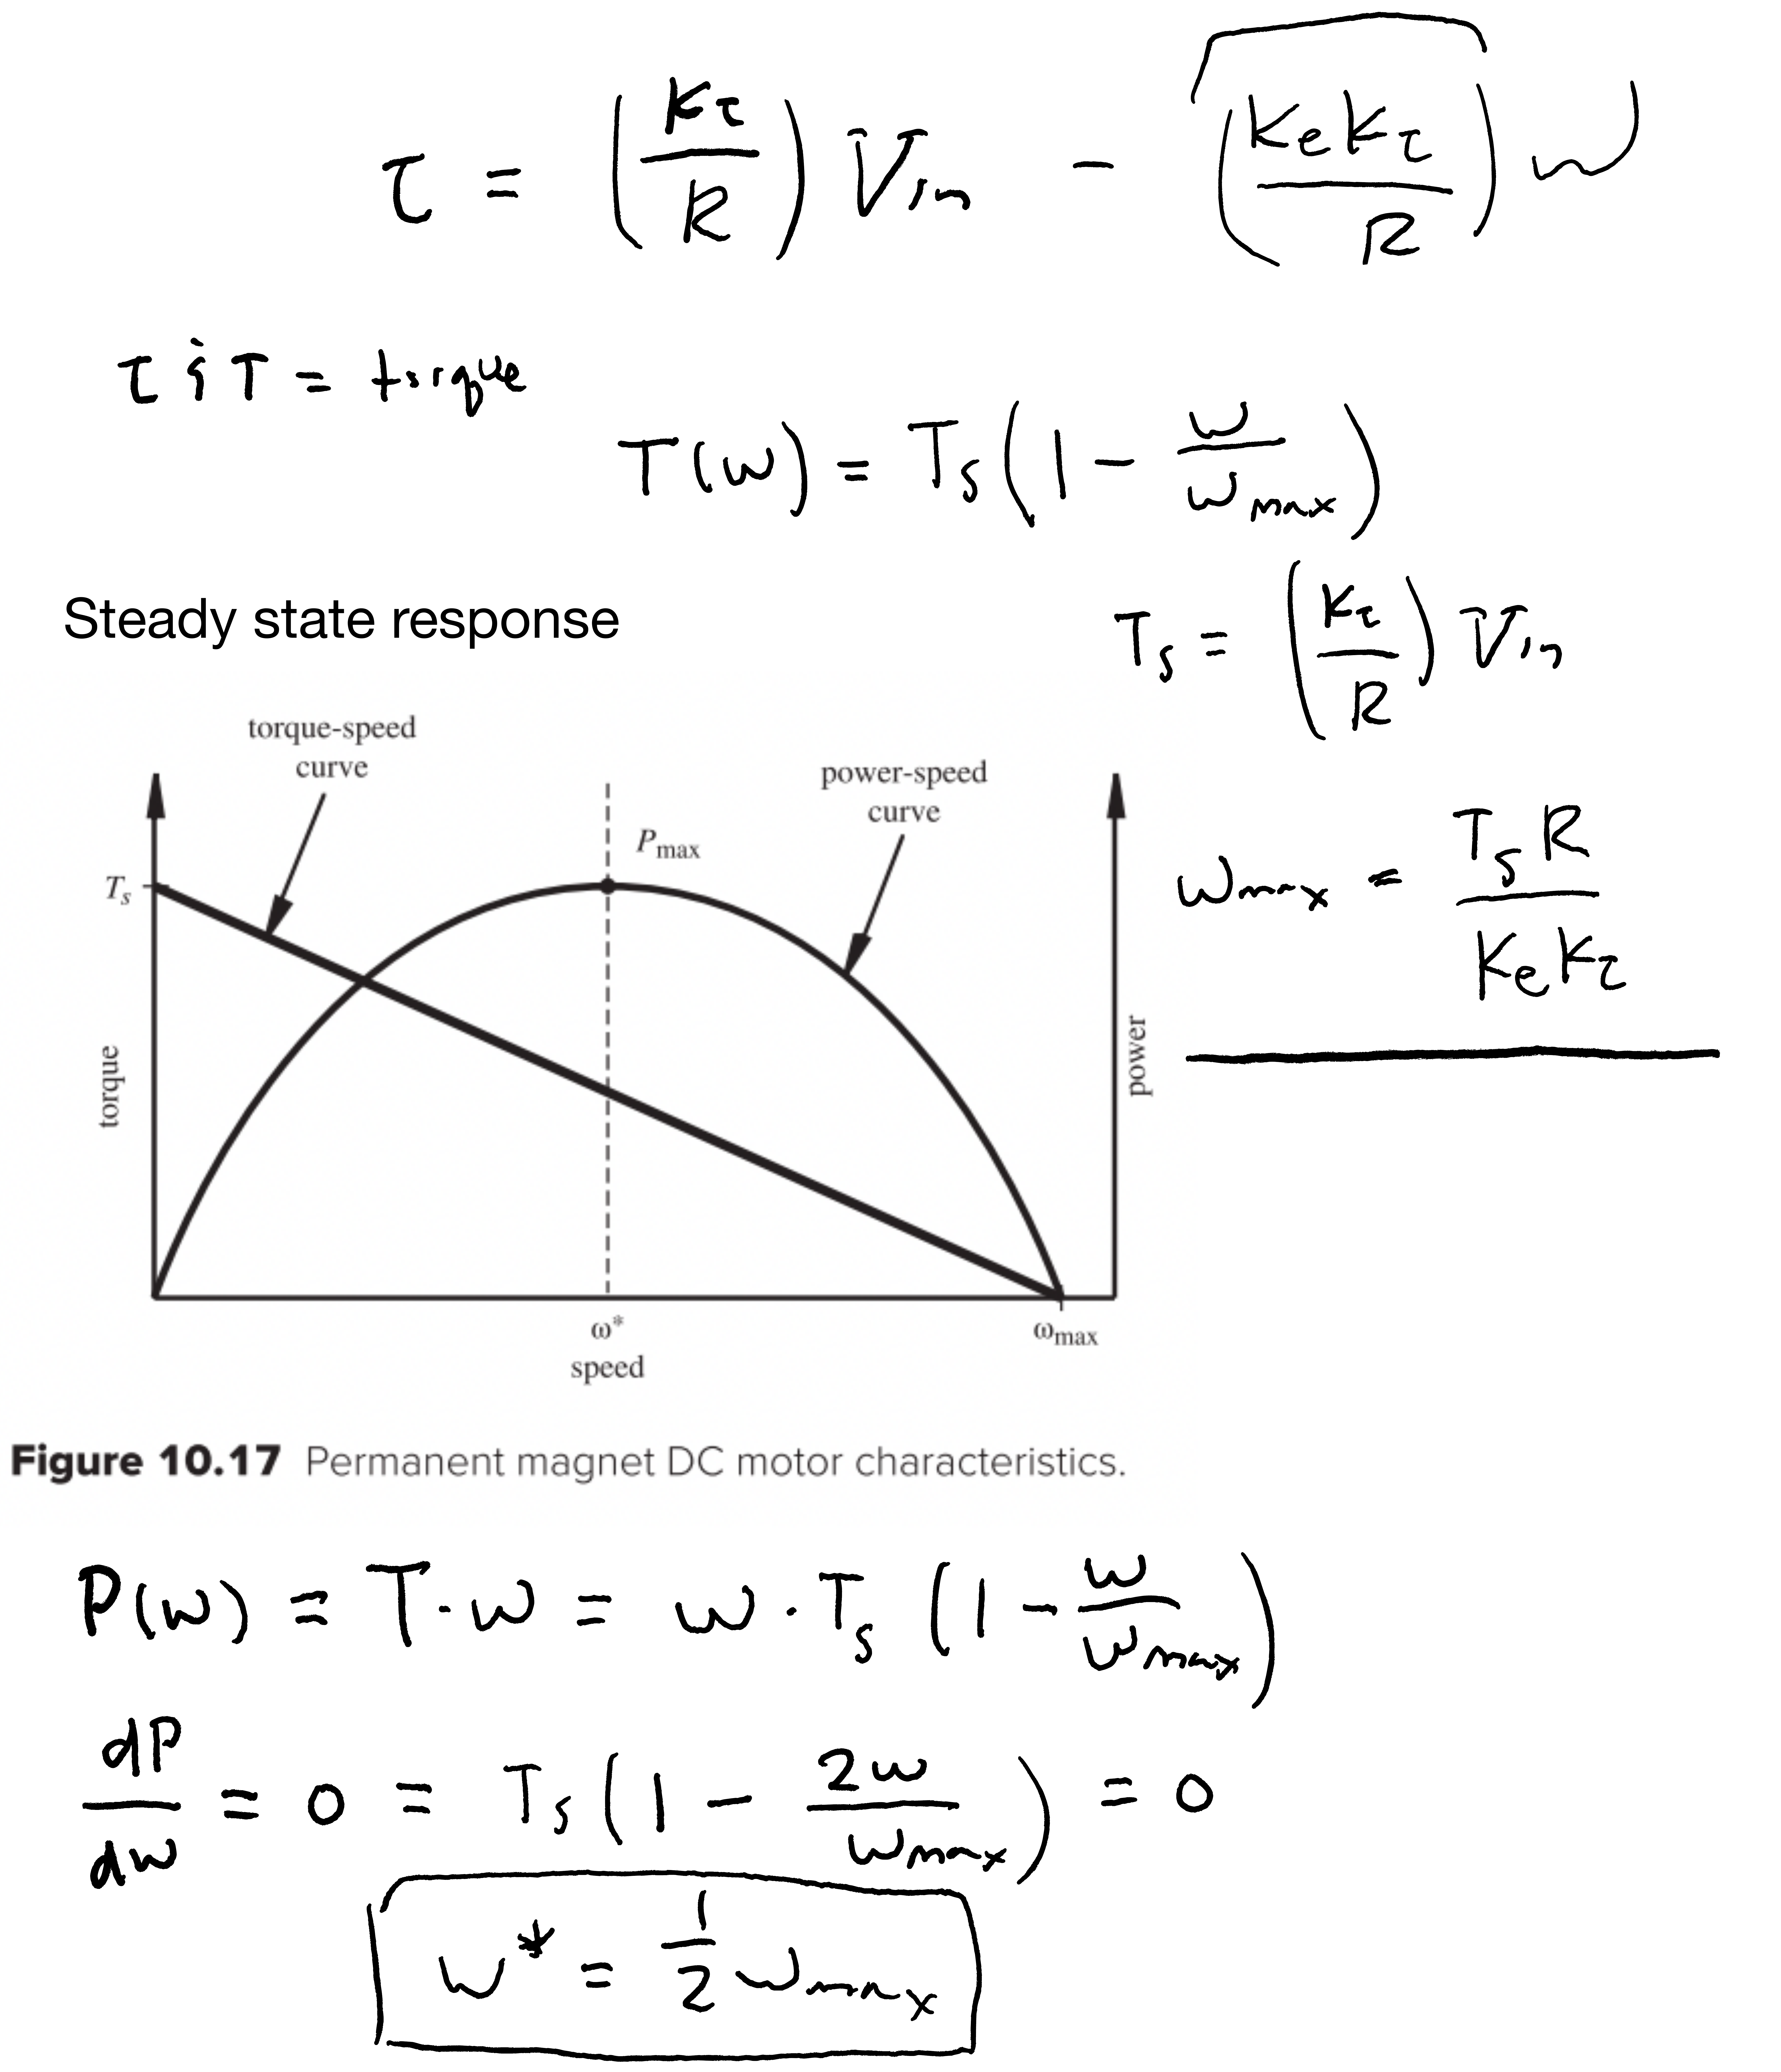 τ = (kτ/R) Vin − (Ke kτ/R) ω
τ ; T = torque
T(ω) = Ts(1 − ω/ωmax)
Steady state response
Ts = (kτ/R) Vin
torque-speed
curve
power-speed
curve
Pmax
Ts
ωmax = Ts R/(Ke kτ)
torque
power
ω*
ωmax
speed
Figure 10.17 Permanent magnet DC motor characteristics.
P(ω) = T·ω = ω · Ts (1 − ω/ωmax)
dP/dω = 0 = Ts(1 − 2ω/ωmax) = 0
ω* = 1/2 ωmax